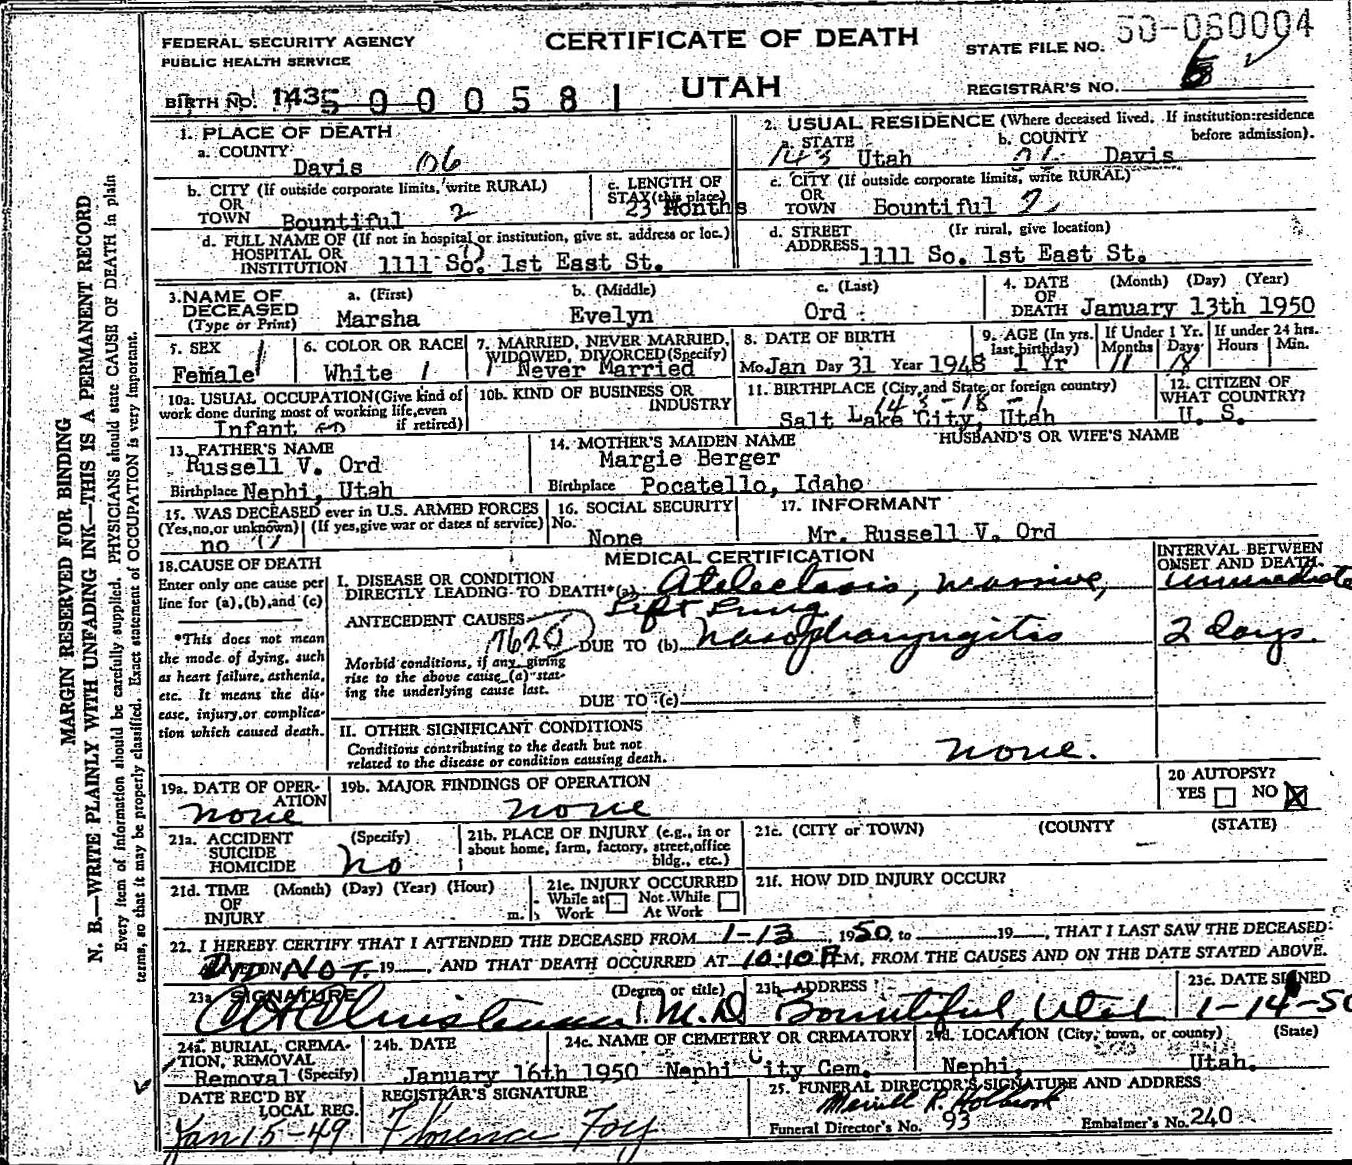 FEDERAL SECURITY AGENCY
PUBLIC HEALTH SERVICE
CERTIFICATE OF DEATH
UTAH
STATE FILE NO. 50-060004
REGISTRAR'S NO.
BIRTH NO. 1435 000581
1. PLACE OF DEATH
a. COUNTY
Davis 06
b. CITY (If outside corporate limits, write RURAL)
OR
TOWN Bountiful 2
c. LENGTH OF
STAY (this place)
23 Months
d. FULL NAME OF (If not in hospital or institution, give st. address or loc.)
HOSPITAL OR
INSTITUTION 1111 So. 1st East St.
2. USUAL RESIDENCE (Where deceased lived. If institution:residence
before admission).
a. STATE b. COUNTY
143 Utah Davis
c. CITY (If outside corporate limits, write RURAL)
OR
TOWN Bountiful 2
d. STREET (Ir rural, give location)
ADDRESS 1111 So. 1st East St.
3. NAME OF
DECEASED
(Type or Print)
a. (First) b. (Middle) c. (Last)
Marsha Evelyn Ord
4. DATE (Month) (Day) (Year)
OF
DEATH January 13th 1950
5. SEX
Female 1
6. COLOR OR RACE
White 1
7. MARRIED, NEVER MARRIED,
WIDOWED, DIVORCED (Specify)
1 Never Married
8. DATE OF BIRTH
Mo. Jan Day 31 Year 1948
9. AGE (In yrs.
last birthday)
1 Yr
If Under 1 Yr.
Months Days
11 18
If under 24 hrs.
Hours Min.
10a. USUAL OCCUPATION (Give kind of
work done during most of working life, even
if retired)
Infant
10b. KIND OF BUSINESS OR
INDUSTRY
11. BIRTHPLACE (City, and State or foreign country)
143-18-1
Salt Lake City, Utah
12. CITIZEN OF
WHAT COUNTRY?
U. S.
13. FATHER'S NAME
Russell V. Ord
Birthplace Nephi, Utah
14. MOTHER'S MAIDEN NAME
Margie Berger
Birthplace Pocatello, Idaho
HUSBAND'S OR WIFE'S NAME
15. WAS DECEASED ever in U.S. ARMED FORCES
(Yes, no, or unknown) (If yes, give war or dates of service)
no
16. SOCIAL SECURITY
No.
None
17. INFORMANT
Mr. Russell V. Ord
18. CAUSE OF DEATH
Enter only one cause per
line for (a), (b), and (c)
*This does not mean
the mode of dying, such
as heart failure, asthenia,
etc. It means the dis-
ease, injury, or complica-
tion which caused death.
MEDICAL CERTIFICATION
INTERVAL BETWEEN
ONSET AND DEATH
I. DISEASE OR CONDITION
DIRECTLY LEADING TO DEATH* (a) Atelectasis, massive, immediate
Left Lung
ANTECEDENT CAUSES
7620 DUE TO (b) Nasopharyngitis 2 days.
Morbid conditions, if any, giving
rise to the above cause (a) stat-
ing the underlying cause last.
DUE TO (c)
II. OTHER SIGNIFICANT CONDITIONS
Conditions contributing to the death but not
related to the disease or condition causing death.
none.
19a. DATE OF OPER-
ATION
none
19b. MAJOR FINDINGS OF OPERATION
none
20 AUTOPSY?
YES NO
21a. ACCIDENT (Specify)
SUICIDE
HOMICIDE no
21b. PLACE OF INJURY (e.g., in or
about home, farm, factory, street, office
bldg., etc.)
21c. (CITY or TOWN) (COUNTY (STATE)
21d. TIME (Month) (Day) (Year) (Hour)
OF
INJURY m.
21e. INJURY OCCURRED
While at Not While
Work At Work
21f. HOW DID INJURY OCCUR?
22. I HEREBY CERTIFY THAT I ATTENDED THE DECEASED FROM 1-13 1950, to 19, THAT I LAST SAW THE DECEASED
DID NOT 19, AND THAT DEATH OCCURRED AT 10:10 P M, FROM THE CAUSES AND ON THE DATE STATED ABOVE.
23a. SIGNATURE (Degree or title)
Christensen M.D.
23b. ADDRESS
Bountiful, Utah
23c. DATE SIGNED
1-14-50
24a. BURIAL, CREMA-
TION, REMOVAL
Removal (Specify)
24b. DATE
January 16th 1950
24c. NAME OF CEMETERY OR CREMATORY
Nephi City Cem.
24d. LOCATION (City, town, or county) (State)
Nephi, Utah.
DATE REC'D BY
LOCAL REG.
Jan 15-49
REGISTRAR'S SIGNATURE
Florence Foy
25. FUNERAL DIRECTOR'S SIGNATURE AND ADDRESS
Merrill R. Holbrook
Funeral Director's No. 93 Embalmer's No. 240
MARGIN RESERVED FOR BINDING
N. B.—WRITE PLAINLY WITH UNFADING INK—THIS IS A PERMANENT RECORD
Every item of information should be carefully supplied. PHYSICIANS should state CAUSE OF DEATH in plain
terms, so that it may be properly classified. Exact statement of OCCUPATION is very important.